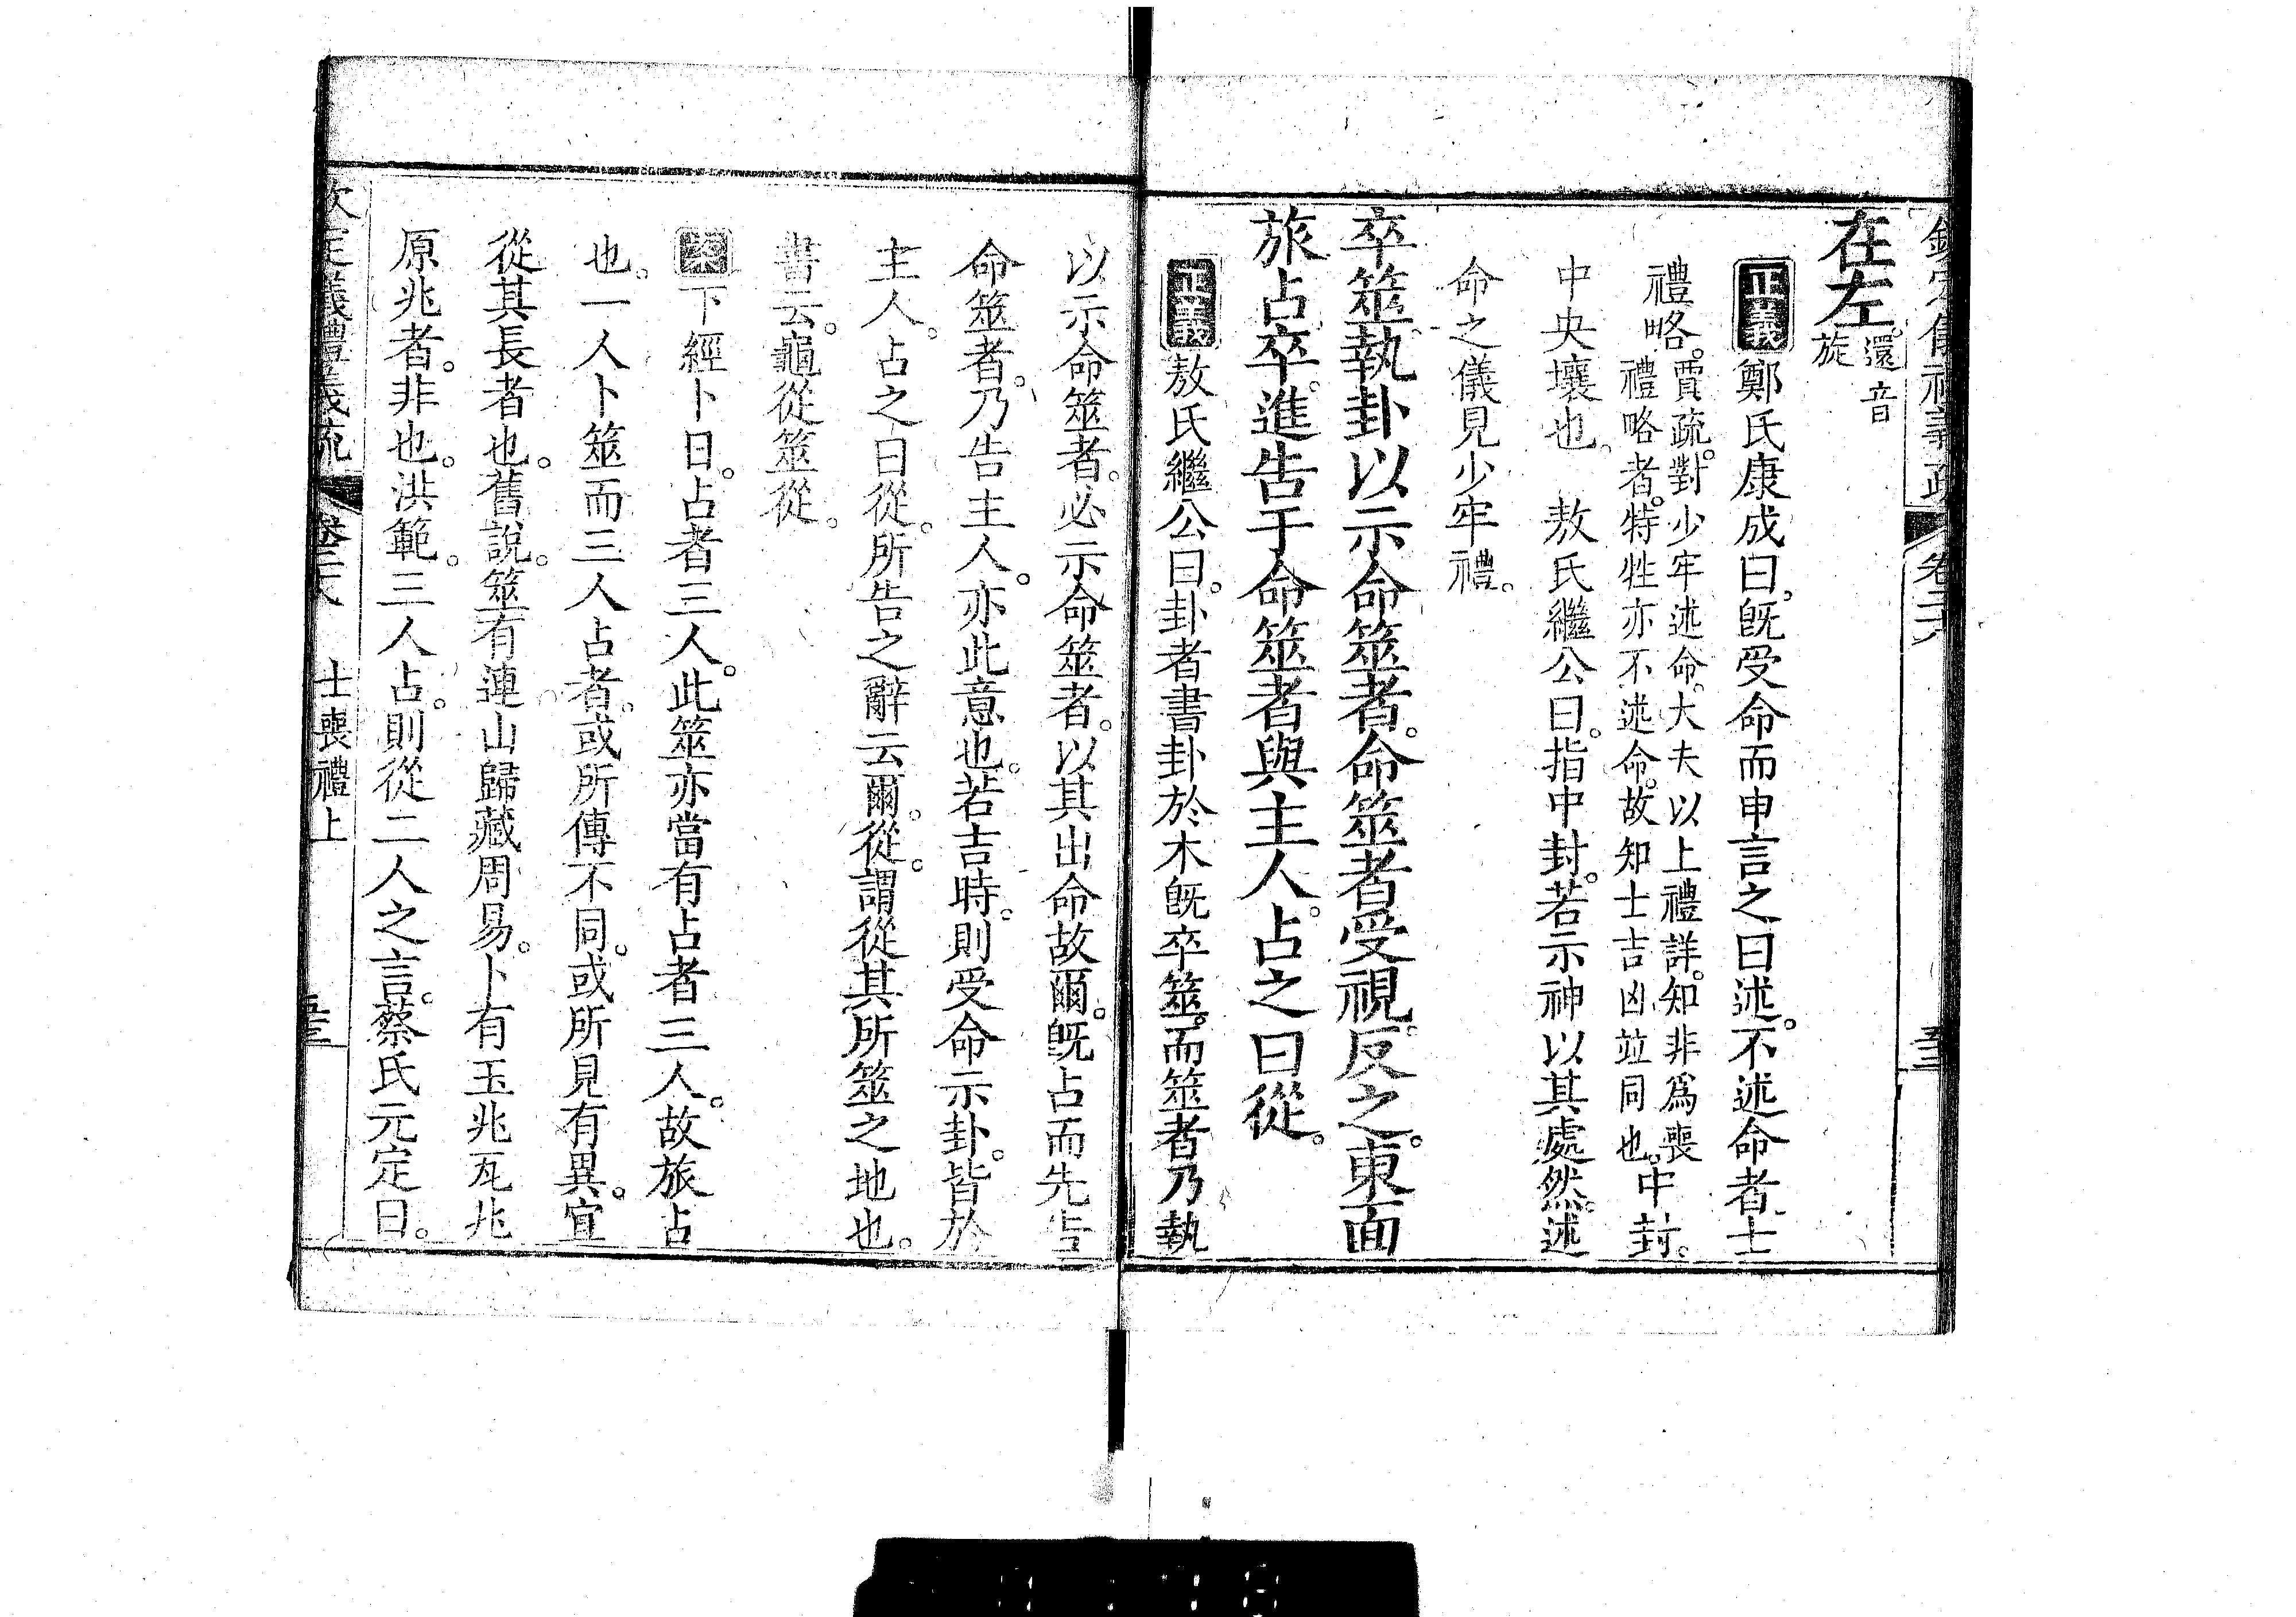 欽定儀禮義疏 卷二十八 五三
在左。還音
旋
正義 鄭氏康成曰。旣受命而申言之曰述。不述命者士
禮略。賈疏。對少牢述命。大夫以上禮詳。知非爲喪
禮略者。特牲亦不述命。故知士吉凶竝同也。中封。
中央壤也。 敖氏繼公曰。指中封。若示神以其處然。述
命之儀見少牢禮。
卒筮。執卦以示命筮者。命筮者受視。反之。東面
旅占卒。進告于命筮者與主人。占之曰從。
正義 敖氏繼公曰。卦者書卦於木旣卒筮。而筮者乃執
以示命筮者。必示命筮者。以其出命故爾。旣占而先告
命筮者。乃告主人。亦此意也。若吉時。則受命示卦。皆於
主人。占之曰從。所告之辭云爾。從。謂從其所筮之地也。
書云。龜從筮從。
案 下經卜日。占者三人。此筮亦當有占者三人。故旅占
也。一人卜筮而三人占者。或所傳不同。或所見有異。宜
從其長者也。舊說。筮有連山歸藏周易。卜有玉兆瓦兆
原兆者。非也。洪範。三人占。則從二人之言。蔡氏元定曰。
欽定儀禮義疏 卷二十八 士喪禮上 五三